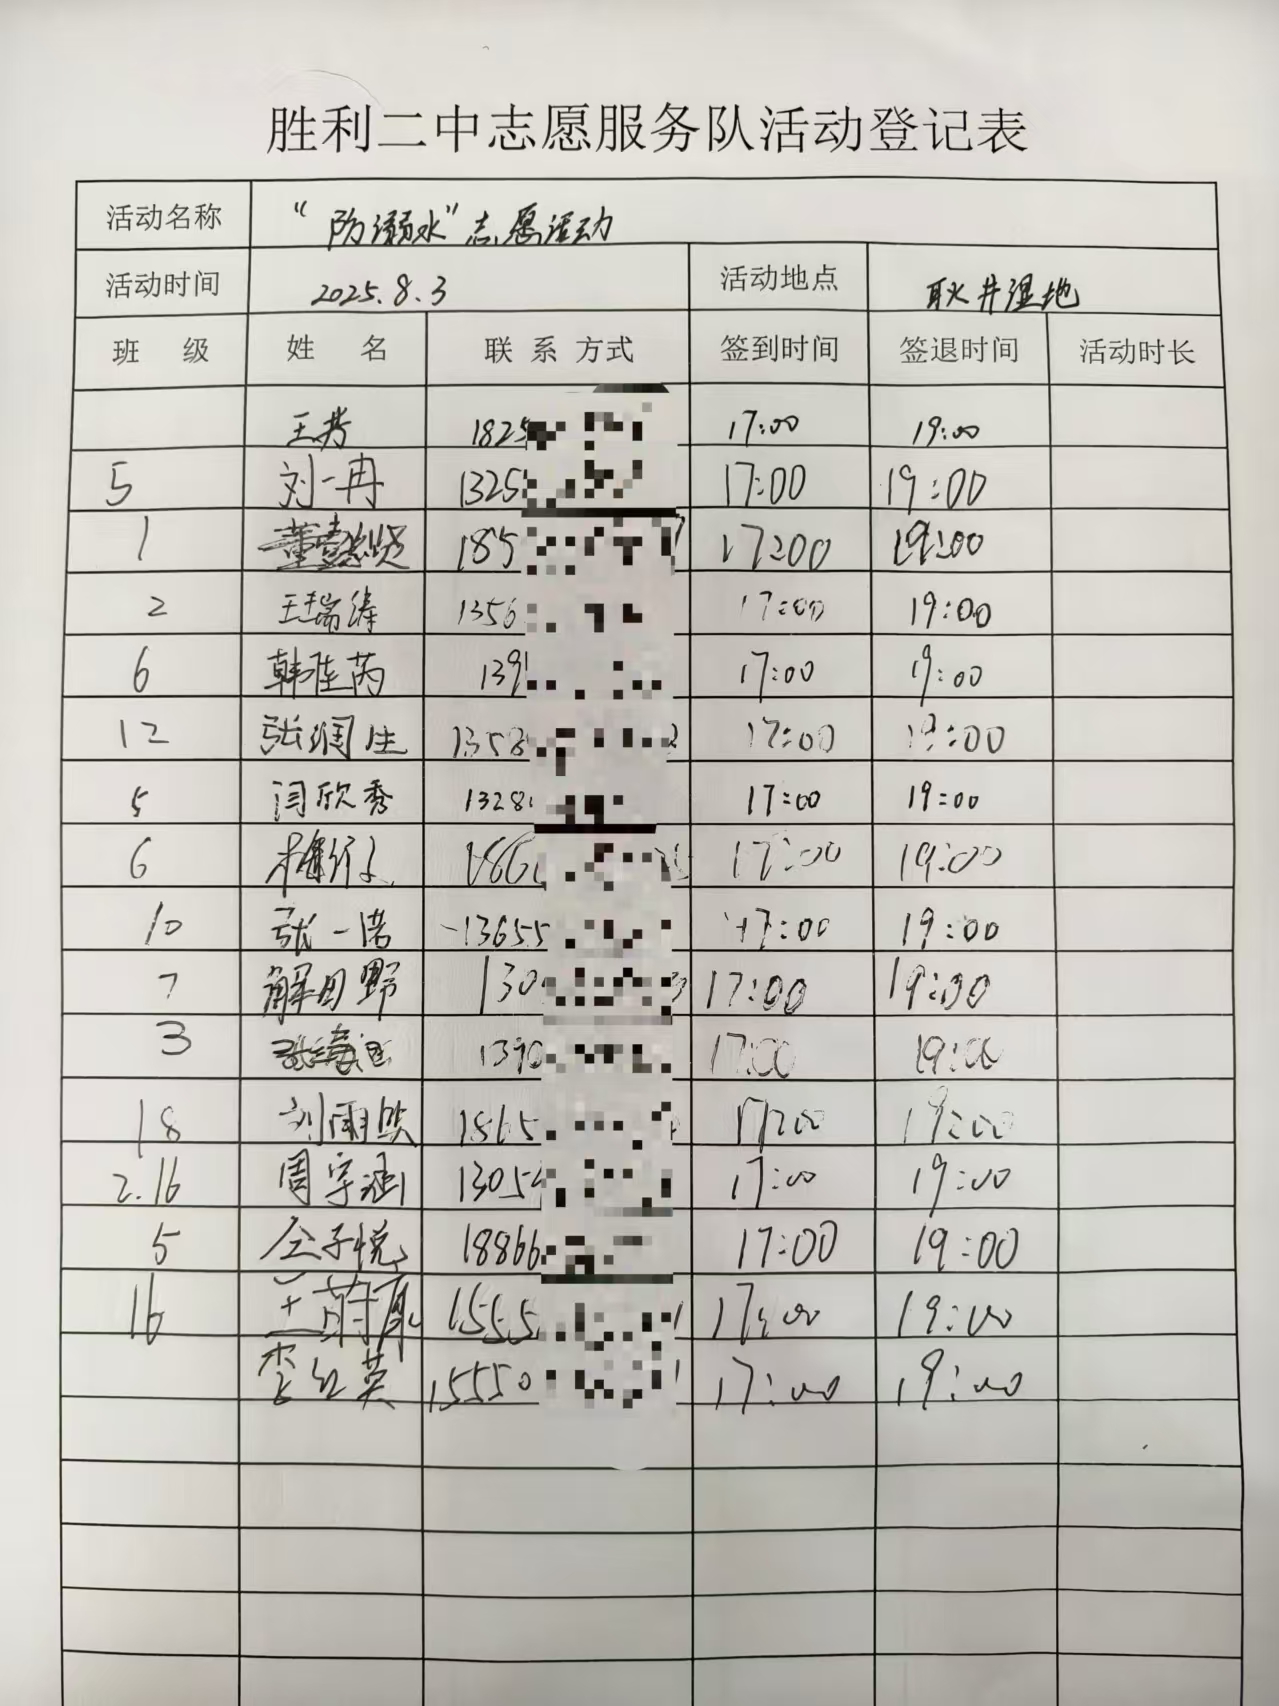 胜利二中志愿服务队活动登记表
活动名称 “防溺水”志愿活动
活动时间 2025.8.3 活动地点 耿井湿地
班 级 姓 名 联 系 方式 签到时间 签退时间 活动时长
王芳 1825 17:00 19:00
5 刘一冉 1325 17:00 19:00
1 董懿贤 185 17:00 19:00
2 王瑞涛 1356 17:00 19:00
6 韩佳芮 139 17:00 19:00
12 张润生 1358 17:00 19:00
5 闫欣秀 1328 17:00 19:00
6 186 17:00 19:00
10 张一诺 13655 17:00 19:00
7 解田野 130 17:00 19:00
3 1390 17:00 19:00
18 刘雨欣 1865 17:00 19:00
2.16 周宇涵 1305 17:00 19:00
5 仝子悦 18866 17:00 19:00
16 王 1555 17:00 19:00
李红英 15550 17:00 19:00